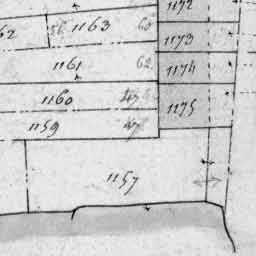 1172
62
56
1163
60
1173
1161
62
1174
1160
1175
1159
1157